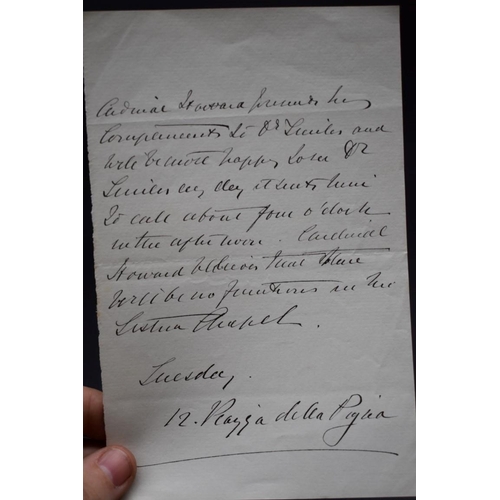 Cardinal Howard presents his
Compliments to Dr Smiles and
will be most happy to see Dr
Smiles any day it suits him
to call about four o'clock
in the afternoon. Cardinal
Howard believes that there
will be no functions in the
Sistina Chapel.
Tuesday,
12. Piazza della Pigna